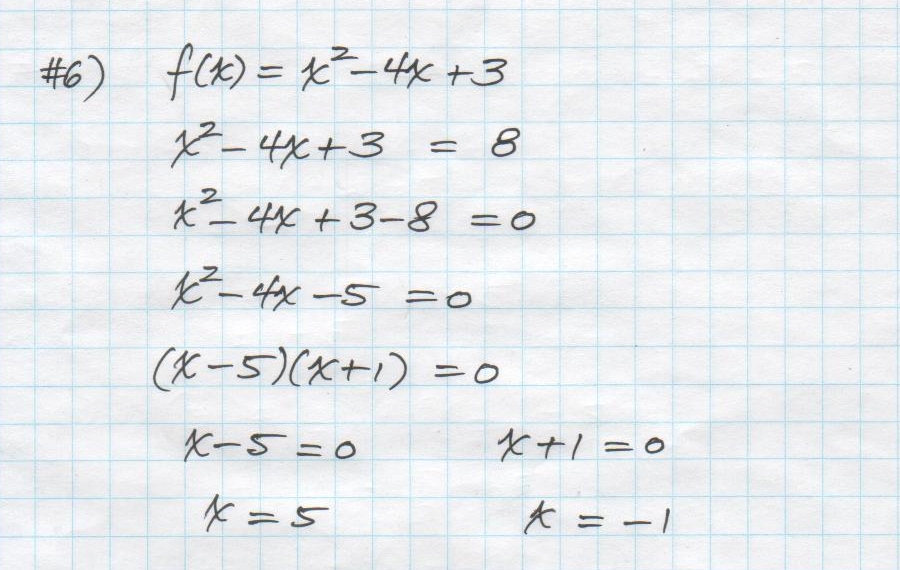 #6) f(x) = x² - 4x + 3
x² - 4x + 3 = 8
x² - 4x + 3 - 8 = 0
x² - 4x - 5 = 0
(x - 5)(x + 1) = 0
x - 5 = 0 x + 1 = 0
x = 5 x = -1